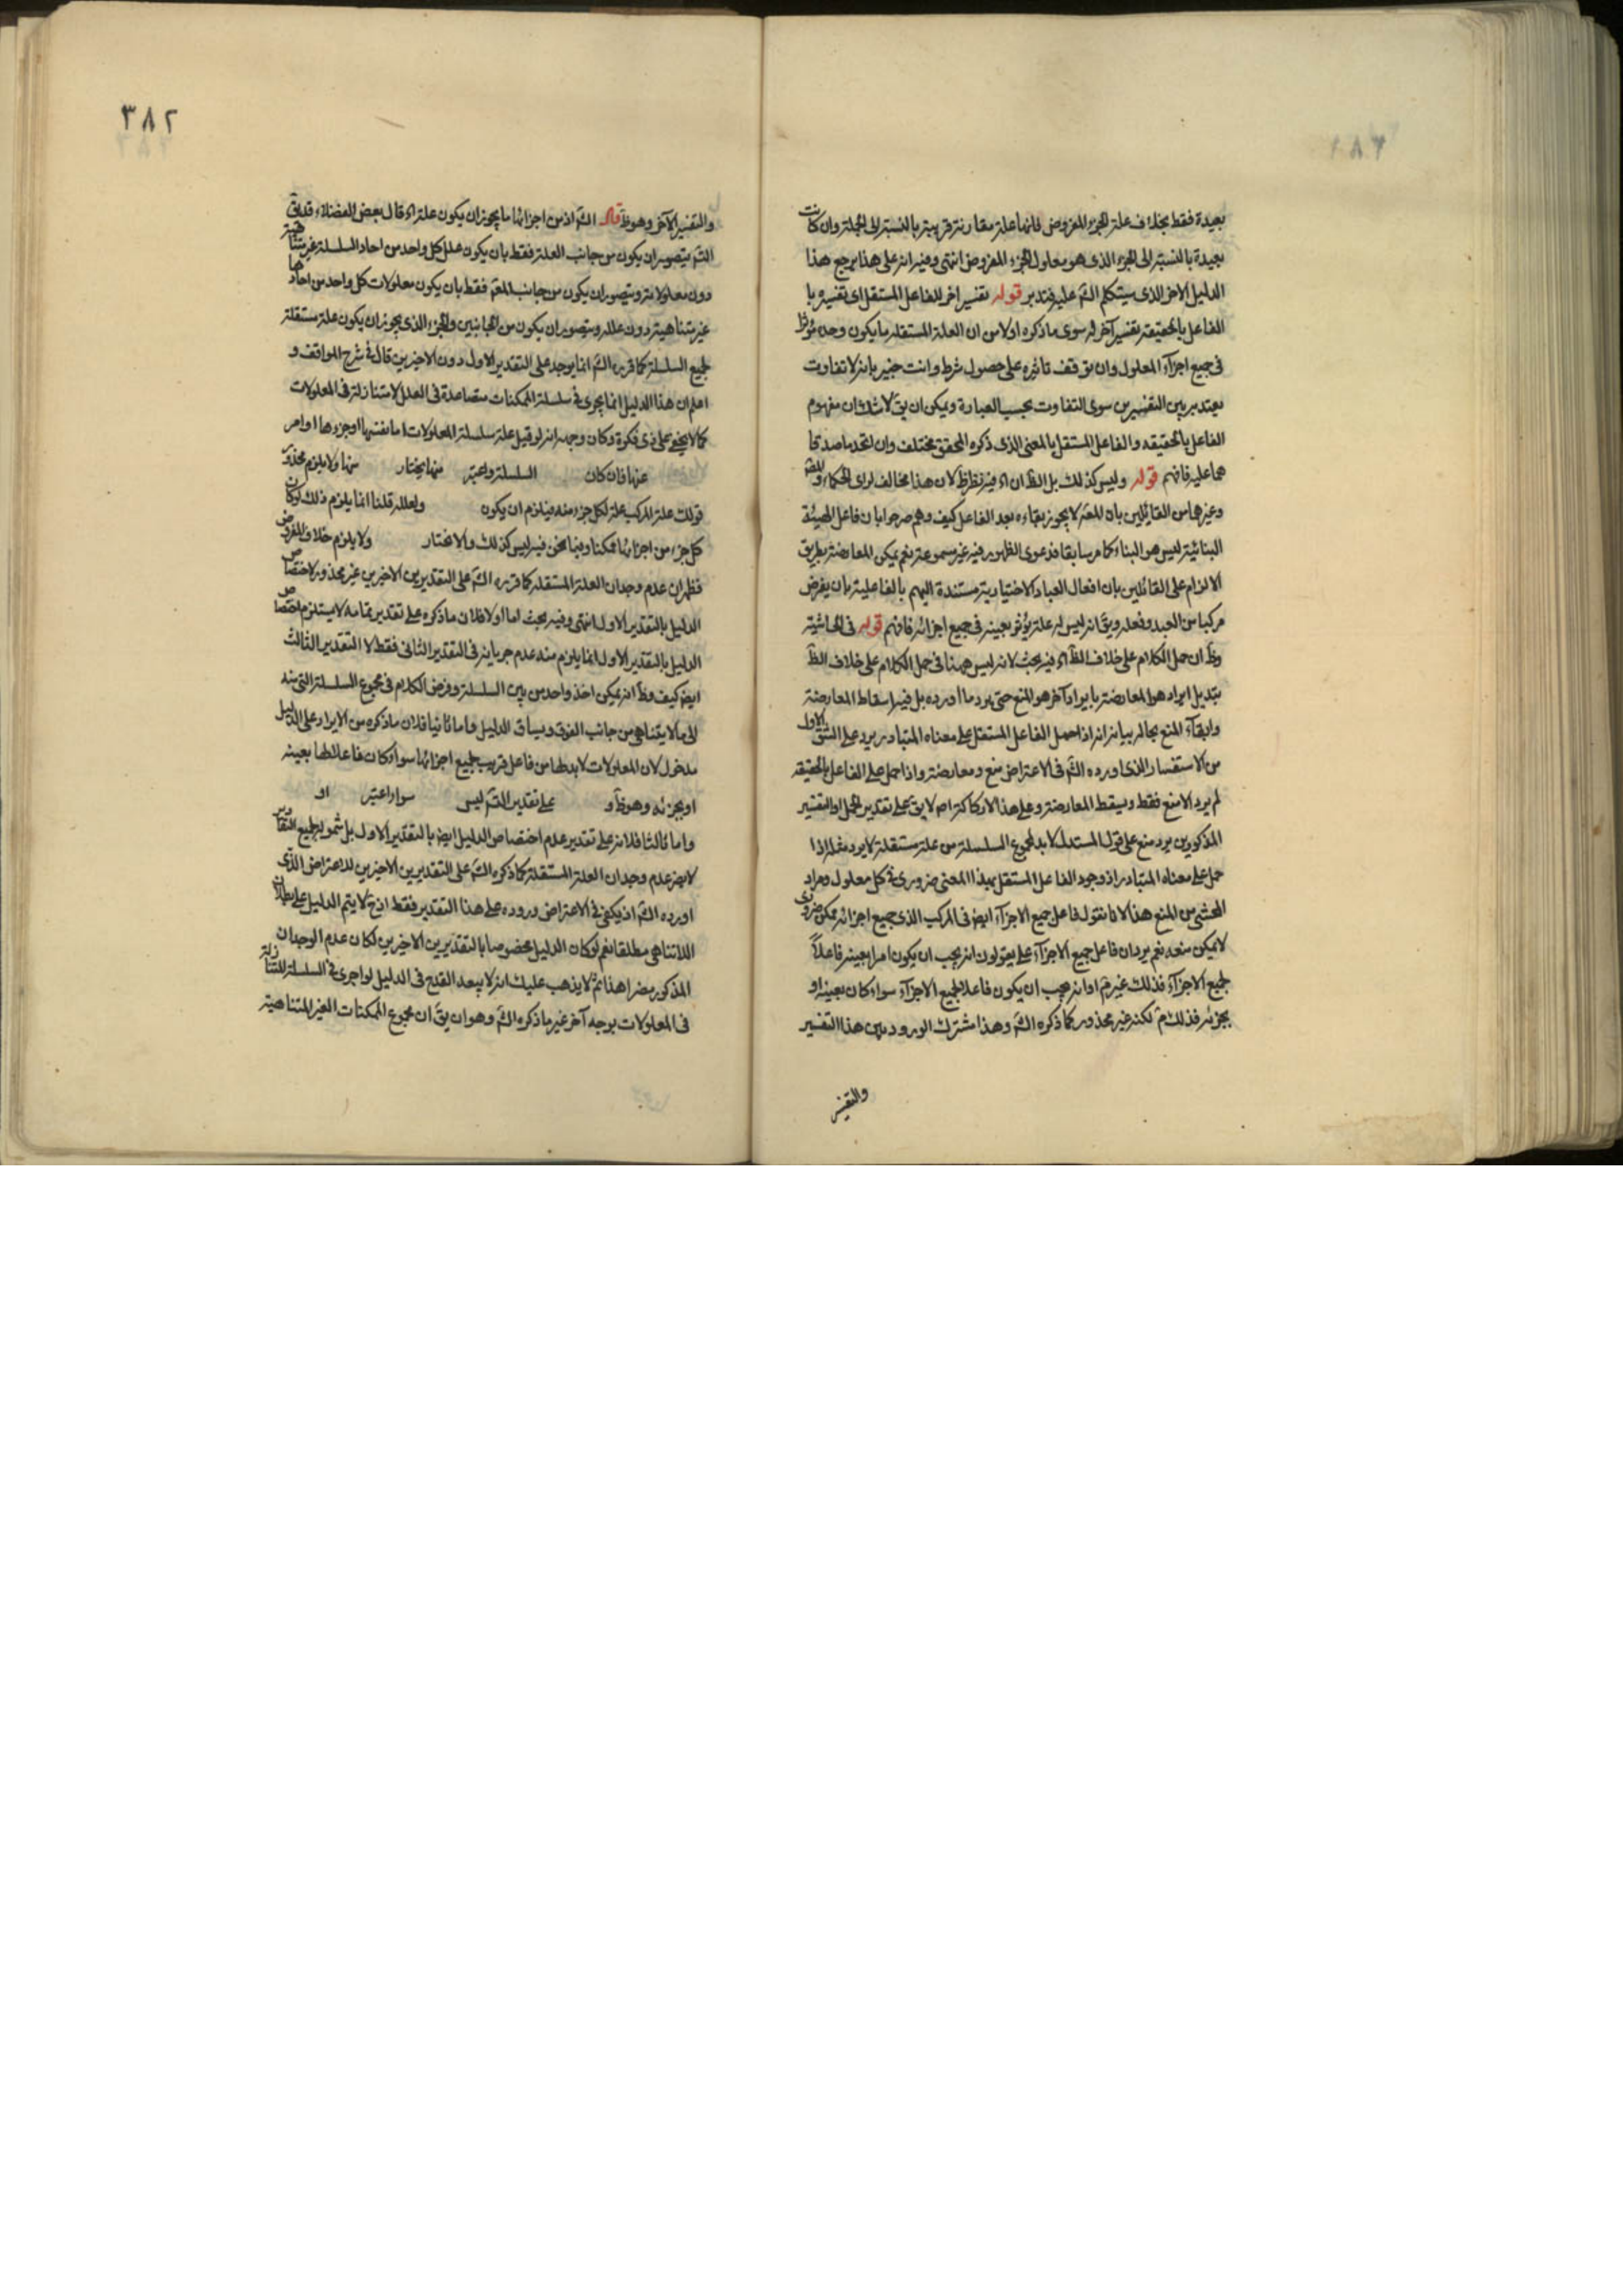 بعيدة فقط بخلاف علة الجزء المفروض فانها علة مقارنة قريبة بالنسبة الى الجملة وان كانت
بعيدة بالنسبة الى الجزء الذى هو معلول الجزء المفروض انتهى وفيه انه على هذا يرجع هذا
الدليل الاخر الذى سيتكلم الشم عليه فتدبر قوله تفسير اخر للفاعل المستقل اى تفسيره با
الفاعل بالحقيقة تفسير آخر له سوى ما ذكره اولا من ان العلة المستقلة ما يكون وحده مؤثرا
فى جميع اجزآء المعلول وان توقف تاثيره على حصول شرط وانت خبير بانه لا تفاوت
يعتد به بين التفسيرين سوى التفاوت بحسب العبارة ويمكن ان يق لا شك ان مفهوم
الفاعل بالحقيقه والفاعل المستقل بالمعنى الذى ذكره المحقق مختلف وان اتحد ما صدقا
هما عليه فافهم قوله وليس كذلك بل الظ ان اه فيه نظر ظ لان هذا مخالف لراى الحكماء
وغيرهما من القائلين بان المعه لا يجوز بقاءه بعد الفاعل كيف وهم صرحوا بان فاعل الهيئة
البنائية ليس هو البناء كما مر سابقا فدعوى الظهور فيه غير مسموعة نعم يمكن المعارضة بطريق
الالزام على القائلين بان افعال العباد الاختيارية مستندة اليهم بالفاعلية بان يفرض
مركبا من العبد وفعله ويق انه ليس له علة يؤثر بعينه فى جميع اجزائه فافهم قوله فى الحاشية
وظ ان حمل الكلام على خلاف الظ اه فيه بحث لانه ليس ههنا فى حمل الكلام على خلاف الظ
تبديل ايراد هو المعارضة بايراد آخر هو المنع حتى يرد ما اورده بل فيه اسقاط المعارضة
وابقآء المنع بحاله بيانه انه اذا حمل الفاعل المستقل على معناه المتبادر يرد على الشق الاول
من الاستفسار الذى اورده الشم فى الاعتراض منع ومعارضة واذا حمل على الفاعل بالحقيقه
لم يرد الا منع فقط ويسقط المعارضة وعلى هذا لا ركاكة اصلا يق على تقدير الحمل او التفسير
المذكورين يرد منع على قول المستدل لا بد لمجموع السلسلة من علة مستقلة لا يرد مثله اذا
حمل على معناه المتبادر اذ وجود الفاعل المستقل بهذا المعنى ضرورى فى كل معلول ومراد
المحشى من المنع هذا لانا نقول فاعل جميع الاجزآء ايض فى المركب الذى جميع اجزائه ممكن ضرورى
لا يمكن منعه نعم يرد ان فاعل جميع الاجزآء على يقولون انه يجب ان يكون امرا بعينه فاعلاً
لجميع الاجزآء فذلك غير م او انه يجب ان يكون فاعلا لجميع الاجزآء سواء كان بعينه او
بجزئه فذلك م لكنه غير محذور كما ذكره الشم وهذا مشترك الورود بين هذا التفسير
والتفسير
٣٨٢
والتفسير الآخر وهو ظ قال الشم اذ من اجزائها ما يجوز ان يكون علة اه قال بعض الفضلاء قد يق
التسم يتصور ان يكون من جانب العلة فقط بان يكون علل كل واحد من احاد السلسلة غير متناهية
دون معلولاته ويتصور ان يكون من جانب المعه فقط بان يكون معلولات كل واحد من احادها
غير متناهية دون علله ويتصور ان يكون من الجانبين والجزء الذى يجوز ان يكون علة مستقلة
لجميع السلسلة كما قرره الشم انما يوجد على التقدير الاول دون الاخيرين قال فى شرح المواقف و
اعلم ان هذا الدليل انما يجرى فى سلسلة الممكنات متصاعدة فى العلل لا متنازلة فى المعلولات
كما لا يخفى على ذى فكرة وكان وجهه انه لو قيل علة سلسلة المعلولات اما نفسها او جزءها او امر
عنها فان كان السلسلة واعتبر منها يختار منها ولا يلزم محذور
قولك علة المركب علة لكل جزء منه فيلزم ان يكون ولعلله قلنا انما يلزم ذلك لو كان
كل جزء من اجزائها ممكنا وفيما نحن فيه ليس كذلك والا نختار ولا يلزم خلاف المفروض
فظهر ان عدم وجدان العلة المستقلة كما قرره الشم على التقديرين الاخيرين غير محذور لاختصاص
الدليل بالتقدير الاول انتهى وفيه بحث اما اولا فلان ما ذكره على تقدير تمامه لا يستلزم اختصاص
الدليل بالتقدير الاول انما يلزم منه عدم جريانه فى التقدير الثانى فقط لا التقدير الثالث
ايض كيف وظ انه يمكن اخذ واحد من بين السلسلة وفرض الكلام فى مجموع السلسلة التى منه
الى ما لا يتناهى من جانب الفوق ويساق الدليل واما ثانيا فلان ما ذكره من الايراد على الدليل
مدخول لان المعلولات لا بد لها من فاعل قريب لجميع اجزائها سواء كان فاعلا لها بعينه
او بجزئه وهو ظ و على تقدير التسم ليس سواء اعتبر او
واما ثالثا فلانه على تقدير عدم اختصاص الدليل ايض بالتقدير الاول بل شموله لجميع التقادير
لا يضر عدم وجدان العلة المستقلة كما ذكره الشم على التقديرين الاخيرين للاعتراض الذى
اورده الشم اذ يكفى فى الاعتراض وروده على هذا التقدير فقط اذ ح لا يتم الدليل على بطلان
اللاتناهى مطلقا نعم لو كان الدليل مخصوصا بالتقديرين الاخيرين لكان عدم الوجدان
المذكور مضرا هذا ثم لا يذهب عليك انه لا يبعد القدح فى الدليل لو اجرى فى السلسلة المتنازلة
فى المعلولات بوجه آخر غير ما ذكره الشم وهو ان يق ان مجموع الممكنات الغير المتناهية